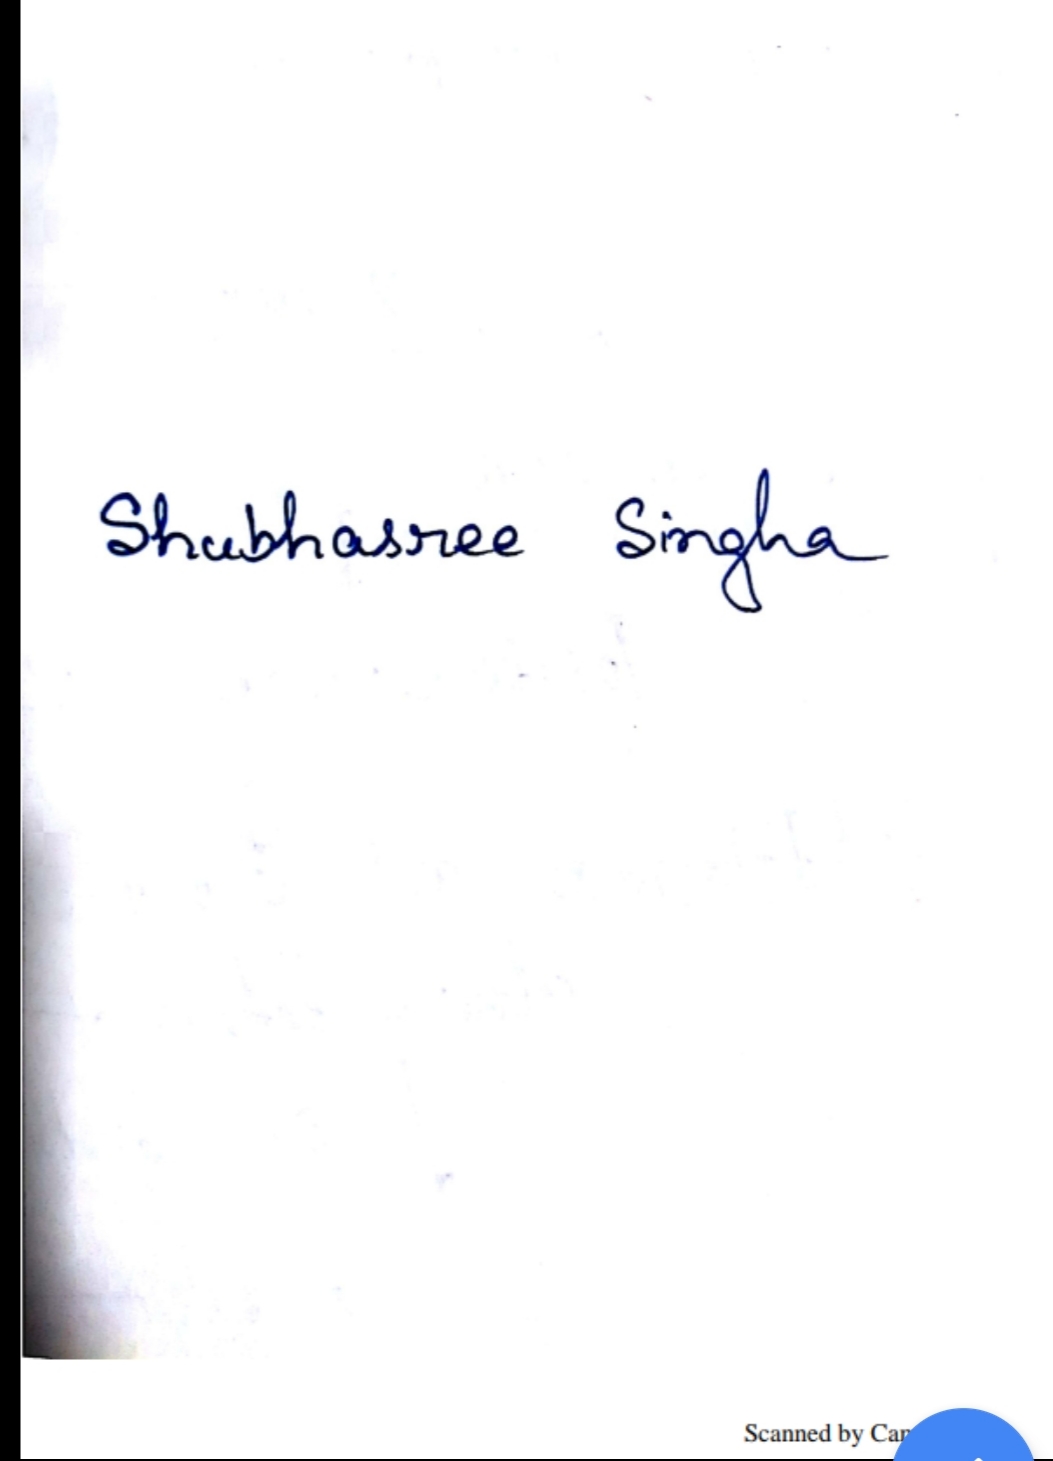 Shubhasree Singha
Scanned by